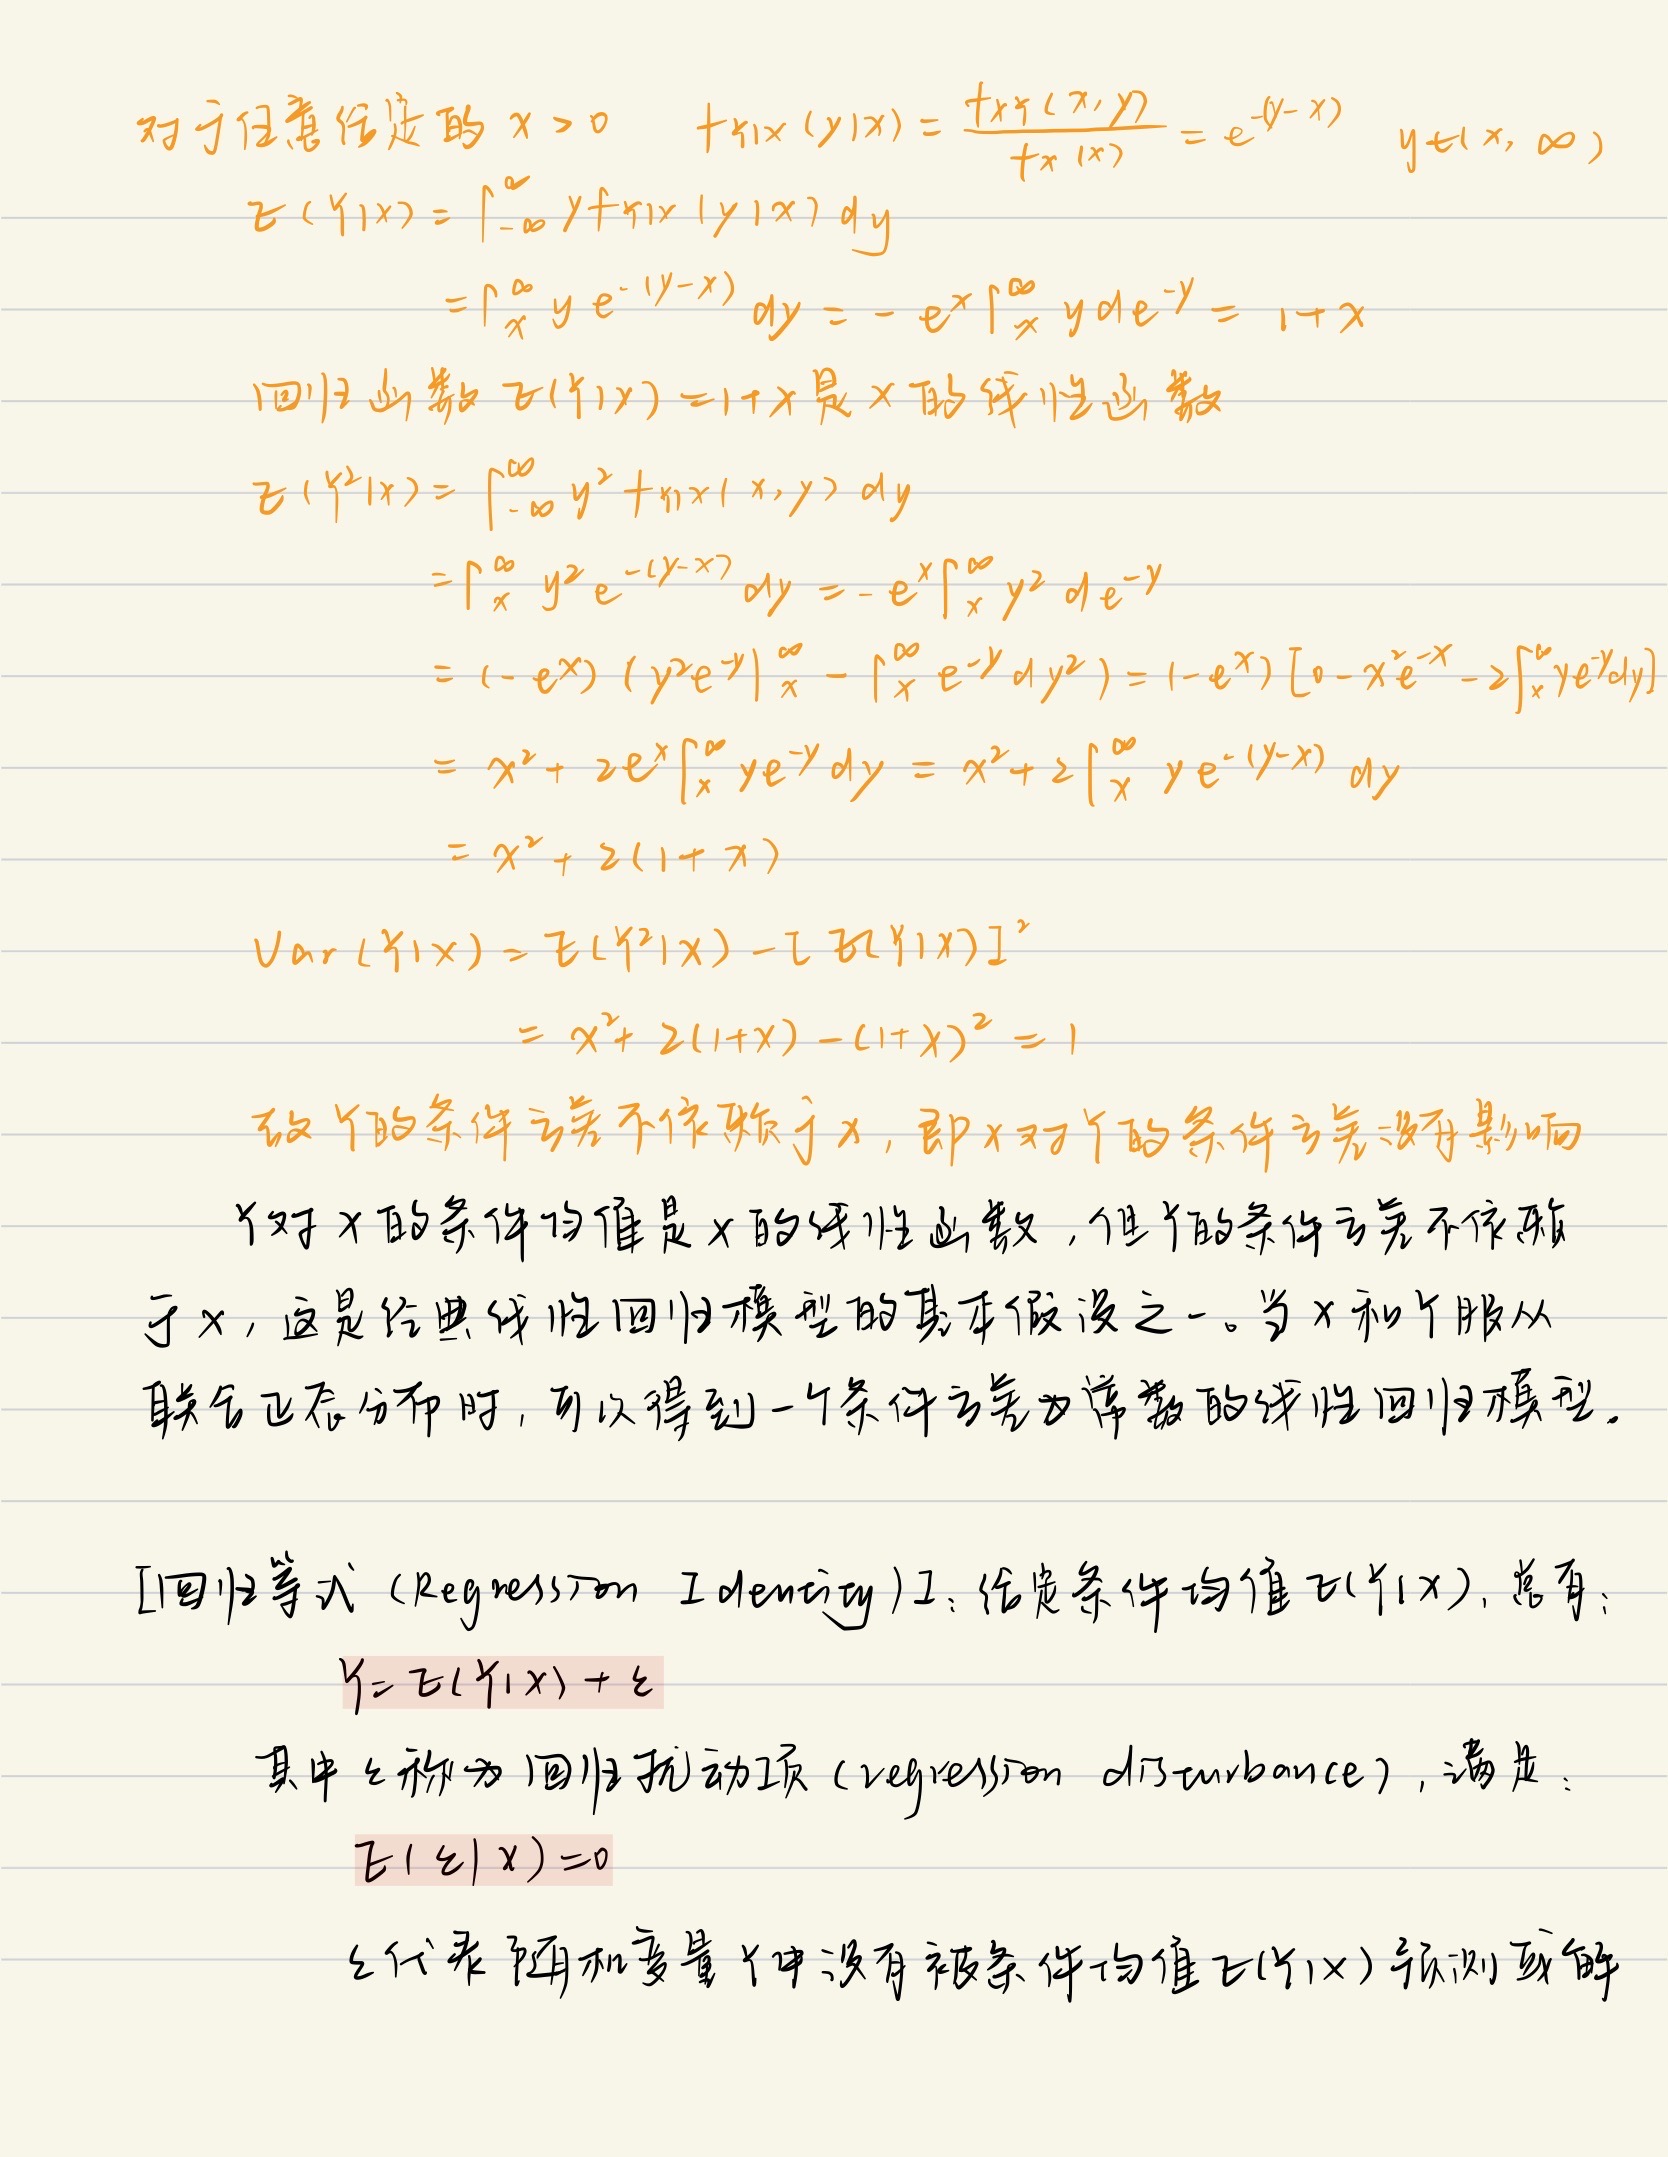 对于任意给定的 x > 0 f_{Y|X}(y|x) = \frac{f_{XY}(x, y)}{f_X(x)} = e^{-(y-x)} y ∈ (x, ∞)
E(Y|x) = ∫_{-∞}^{∞} y f_{Y|X}(y|x) dy
= ∫_x^∞ y e^{-(y-x)} dy = - e^x ∫_x^∞ y d e^{-y} = 1 + x
回归函数 E(Y|x) = 1 + x 是 x 的线性函数
E(Y²|x) = ∫_{-∞}^{∞} y² f_{Y|X}(x, y) dy
= ∫_x^∞ y² e^{-(y-x)} dy = - e^x ∫_x^∞ y² d e^{-y}
= (- e^x) (y² e^{-y}|_x^∞ - ∫_x^∞ e^{-y} dy²) = (- e^x) [0 - x² e^{-x} - 2∫_x^∞ y e^{-y} dy]
= x² + 2e^x ∫_x^∞ y e^{-y} dy = x² + 2∫_x^∞ y e^{-(y-x)} dy
= x² + 2(1 + x)
Var(Y|x) = E(Y²|x) - [E(Y|x)]²
= x² + 2(1+x) - (1+x)² = 1
故 Y 的条件方差不依赖于 x, 即 x 对 Y 的条件方差没有影响
Y 对 X 的条件均值是 X 的线性函数, 但 Y 的条件方差不依赖
于 X, 这是经典线性回归模型的基本假设之一。当 X 和 Y 服从
联合正态分布时, 可以得到一个条件方差为常数的线性回归模型.
[回归等式 (Regression Identity)]: 给定条件均值 E(Y|X), 总有:
Y = E(Y|X) + ε
其中 ε 称为回归扰动项 (regression disturbance), 满足:
E(ε|X) = 0
ε 代表随机变量 Y 中没有被条件均值 E(Y|X) 预测或解